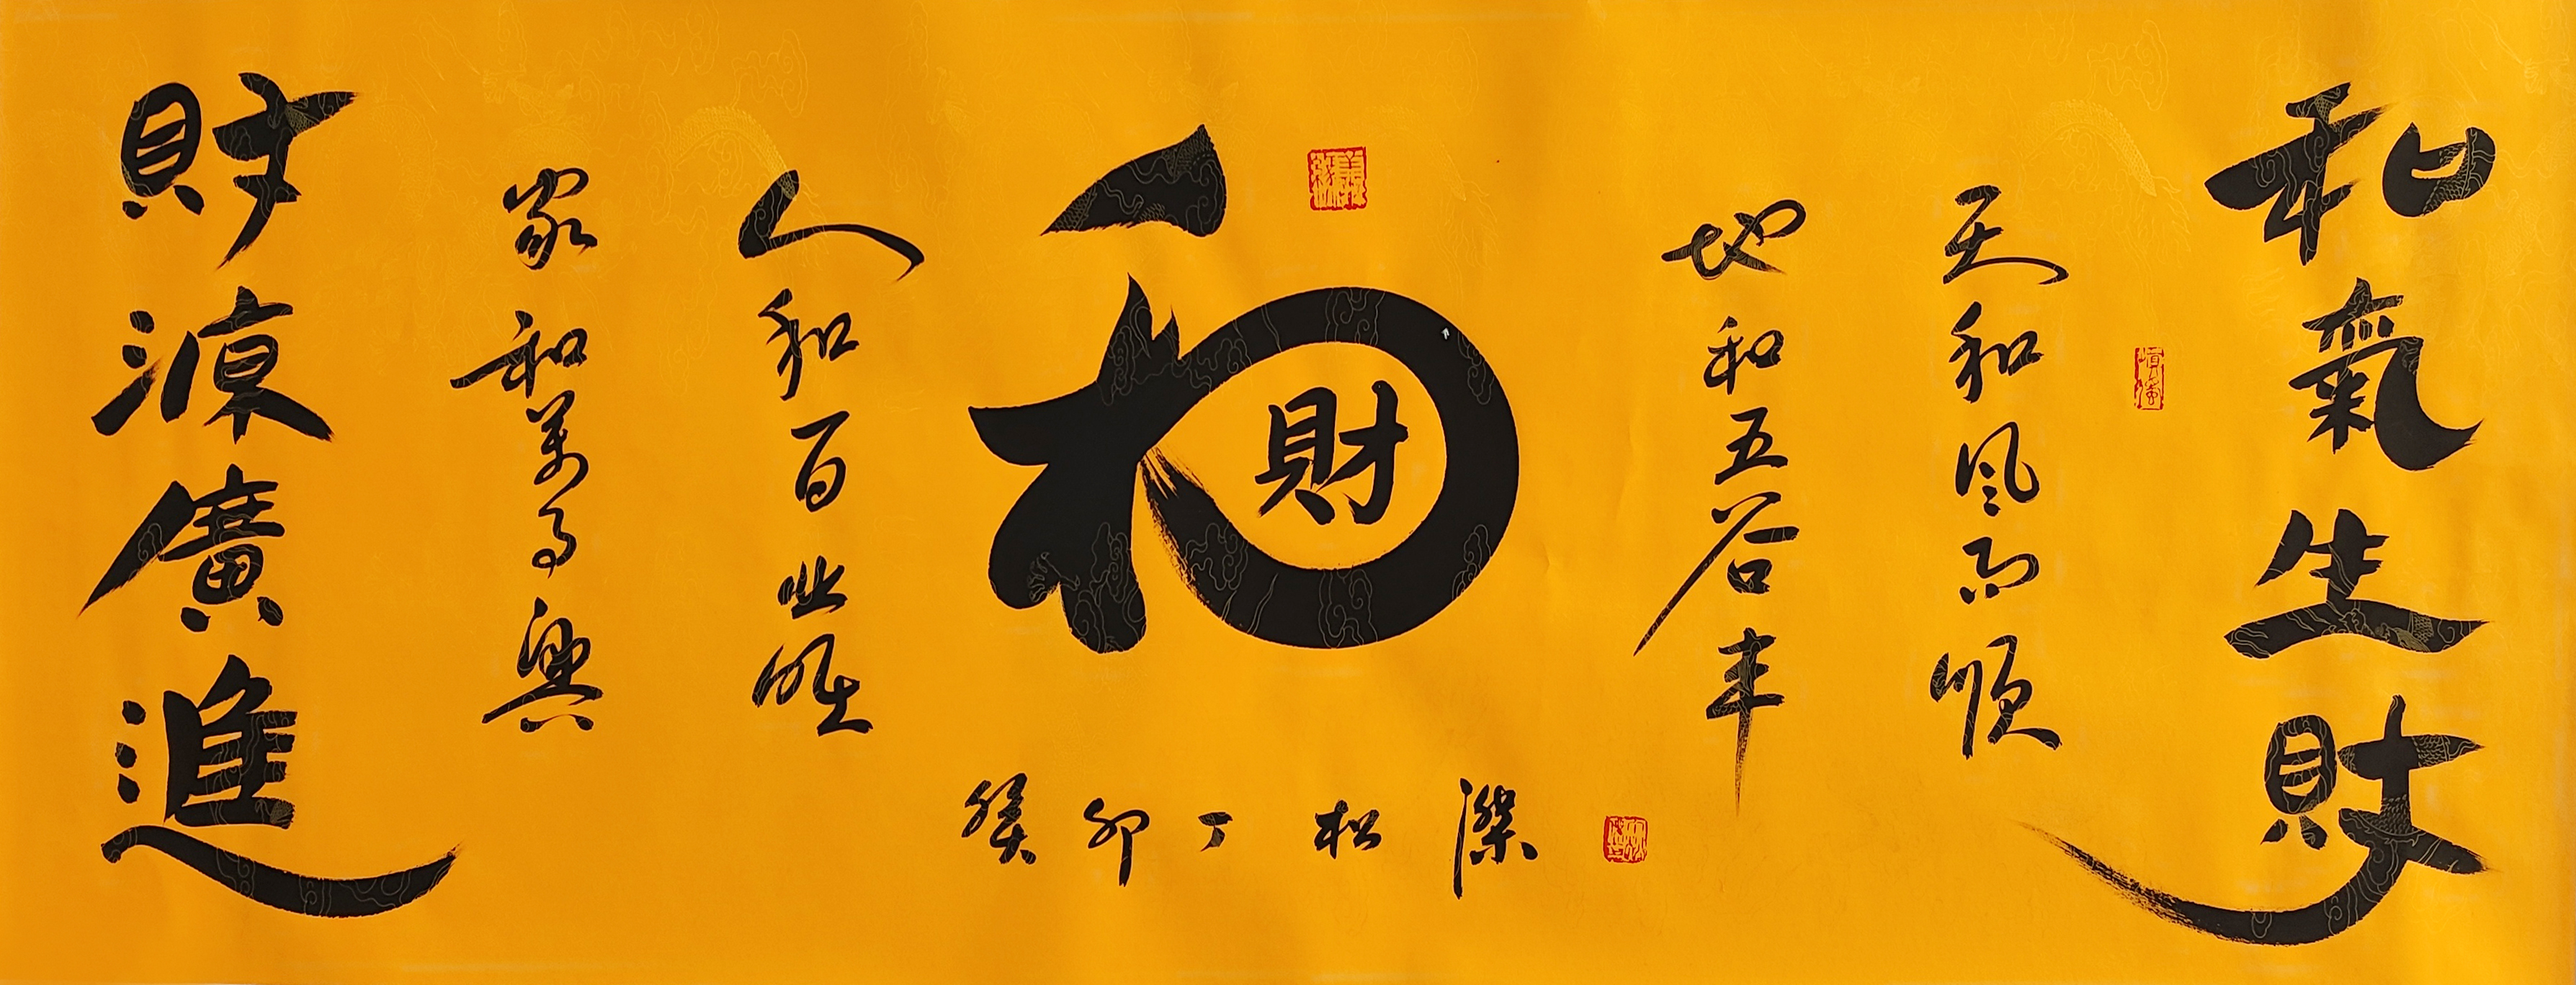 和氣生財
天和风雨顺
地和五谷丰
和
財
人和百业旺
家和萬事興
財源廣進
癸卯丁松滐